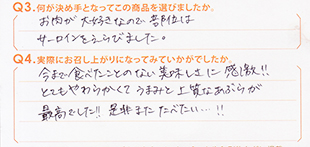 Q3.何が決め手となってこの商品を選びましたか。
お肉が大好きなので部位は
サーロインをえらびました。
Q4.実際にお召し上がりになってみていかがでしたか。
今まで食べたことのない美味しさに感激!!
とてもやわらかくてうまみと上質なあぶらが
最高でした!!是非またたべたい…!!